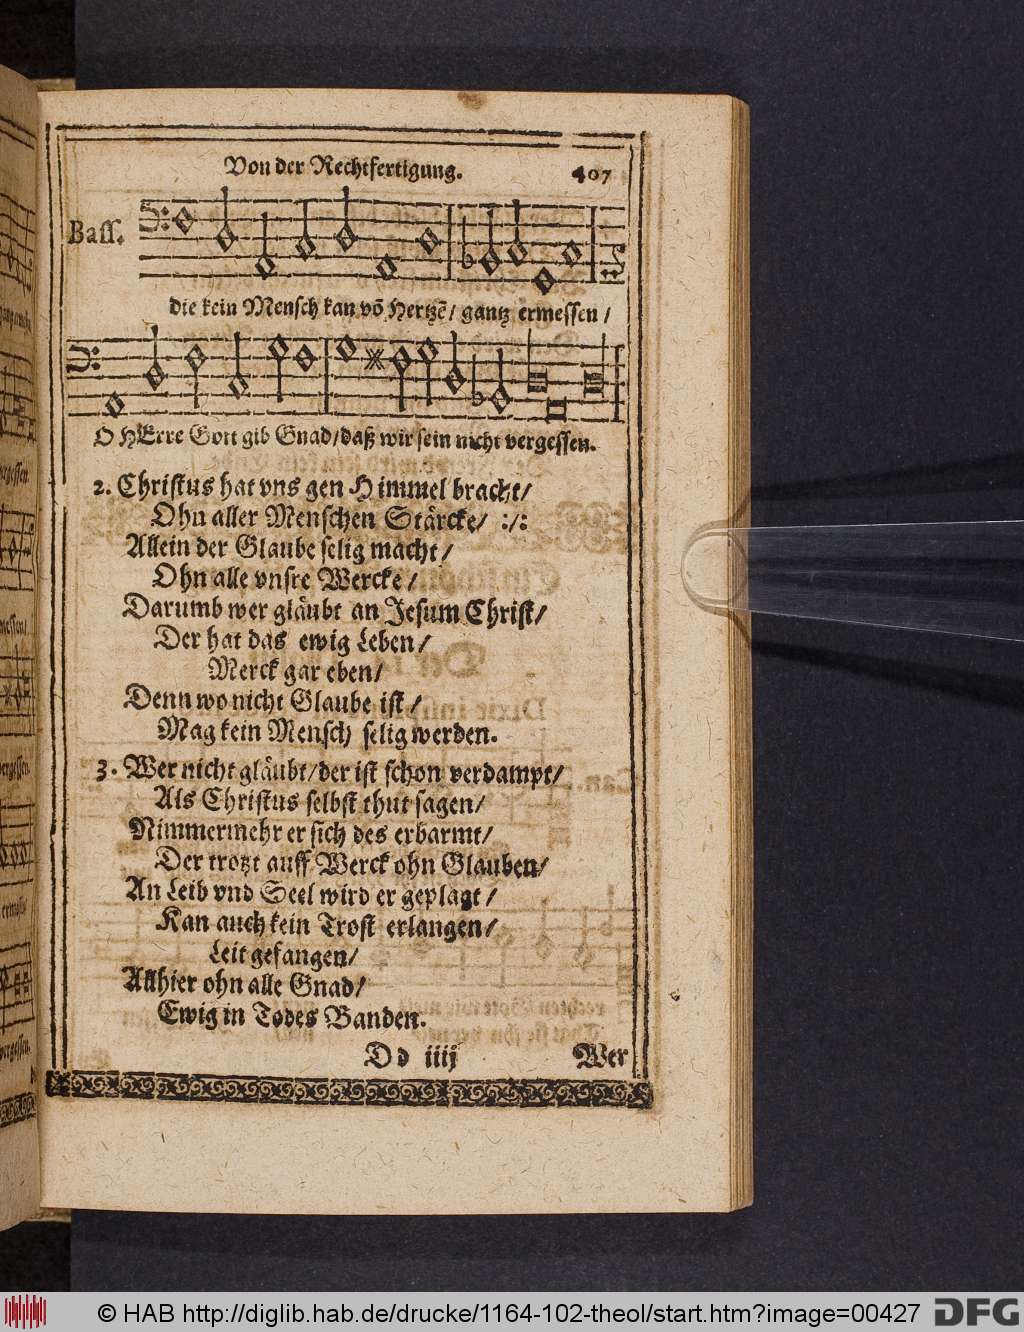 Von der Rechtfertigung. 407
Bass.
die kein Mensch kan võ Hertzē/ gantz ermessen/
O HErre Gott gib Gnad/ daß wir sein nicht vergessen.
2. Christus hat vns gen Himmel bracht/
Ohn aller Menschen Stärcke/ :/:
Allein der Glaube selig macht/
Ohn alle vnsre Wercke/
Darumb wer gläubt an Jesum Christ/
Der hat das ewig Leben/
Merck gar eben/
Denn wo nicht Glaube ist/
Mag kein Mensch selig werden.
3. Wer nicht gläubt/ der ist schon verdampt/
Als Christus selbst thut sagen/
Nimmermehr er sich des erbarmt/
Der trotzt auff Werck ohn Glauben/
An Leib vnd Seel wird er geplagt/
Kan auch kein Trost erlangen/
Leit gefangen/
Allhier ohn alle Gnad/
Ewig in Todes Banden.
Dd iiij Wer
© HAB http://diglib.hab.de/drucke/1164-102-theol/start.htm?image=00427 DFG